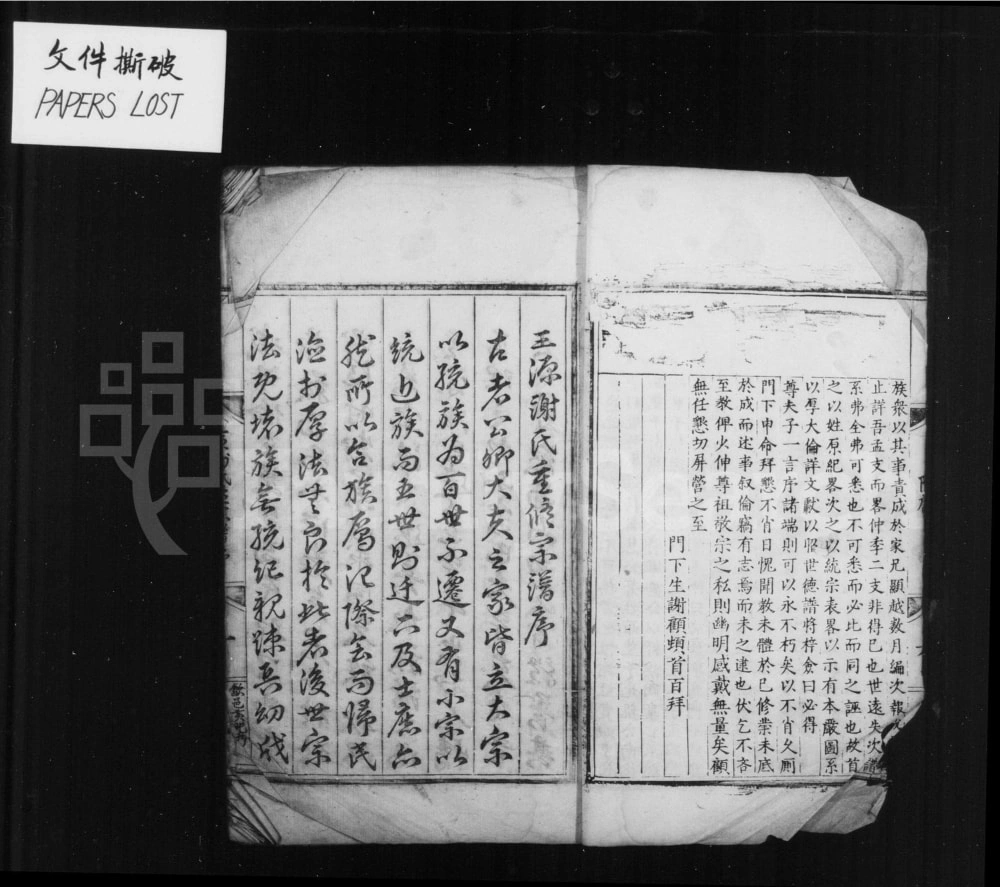 文件撕破
PAPERS LOST
族衆以其事責成於家兄顯越数月編次報
止詳吾孟支而畧仲季二支非得已也世遠失次譜
系弗全弗可悉也不可悉而必比而同之誣也故首
之以姓原紀畧次之以統宗表畧以示有本嚴圖系
以厚大倫詳文獻以昭世德譜將梓僉曰必得
尊夫子一言序諸端則可以永不朽矣以不肖久厕
門下申命拜懇不肖日愧聞教未體於已修業未底
於成而述事叙倫竊有志焉而未之逮也伏乞不吝
至教俾火伸尊祖敬宗之私則幽明感戴無量矣顧
無任懇切屏營之至
門下生謝顧頓首百拜
王源謝氏重修宗譜序
古者公卿大夫之家皆立大宗
以統族为百世不遷又有小宗以
統近族而五世則迁下及士庶亦
然所以合族属祀際会而歸民
於厚法莫良於此者後世宗
法既壊族無統紀親踈長幼